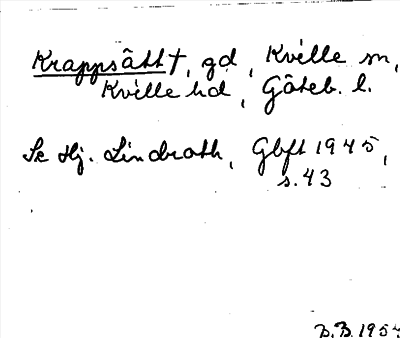 Krappsätt †, gd, Kville sn,
Kville hd, Göteb. l.
Se Hj. Lindroth, Gbft 1945,
s. 43
B.B. 1954